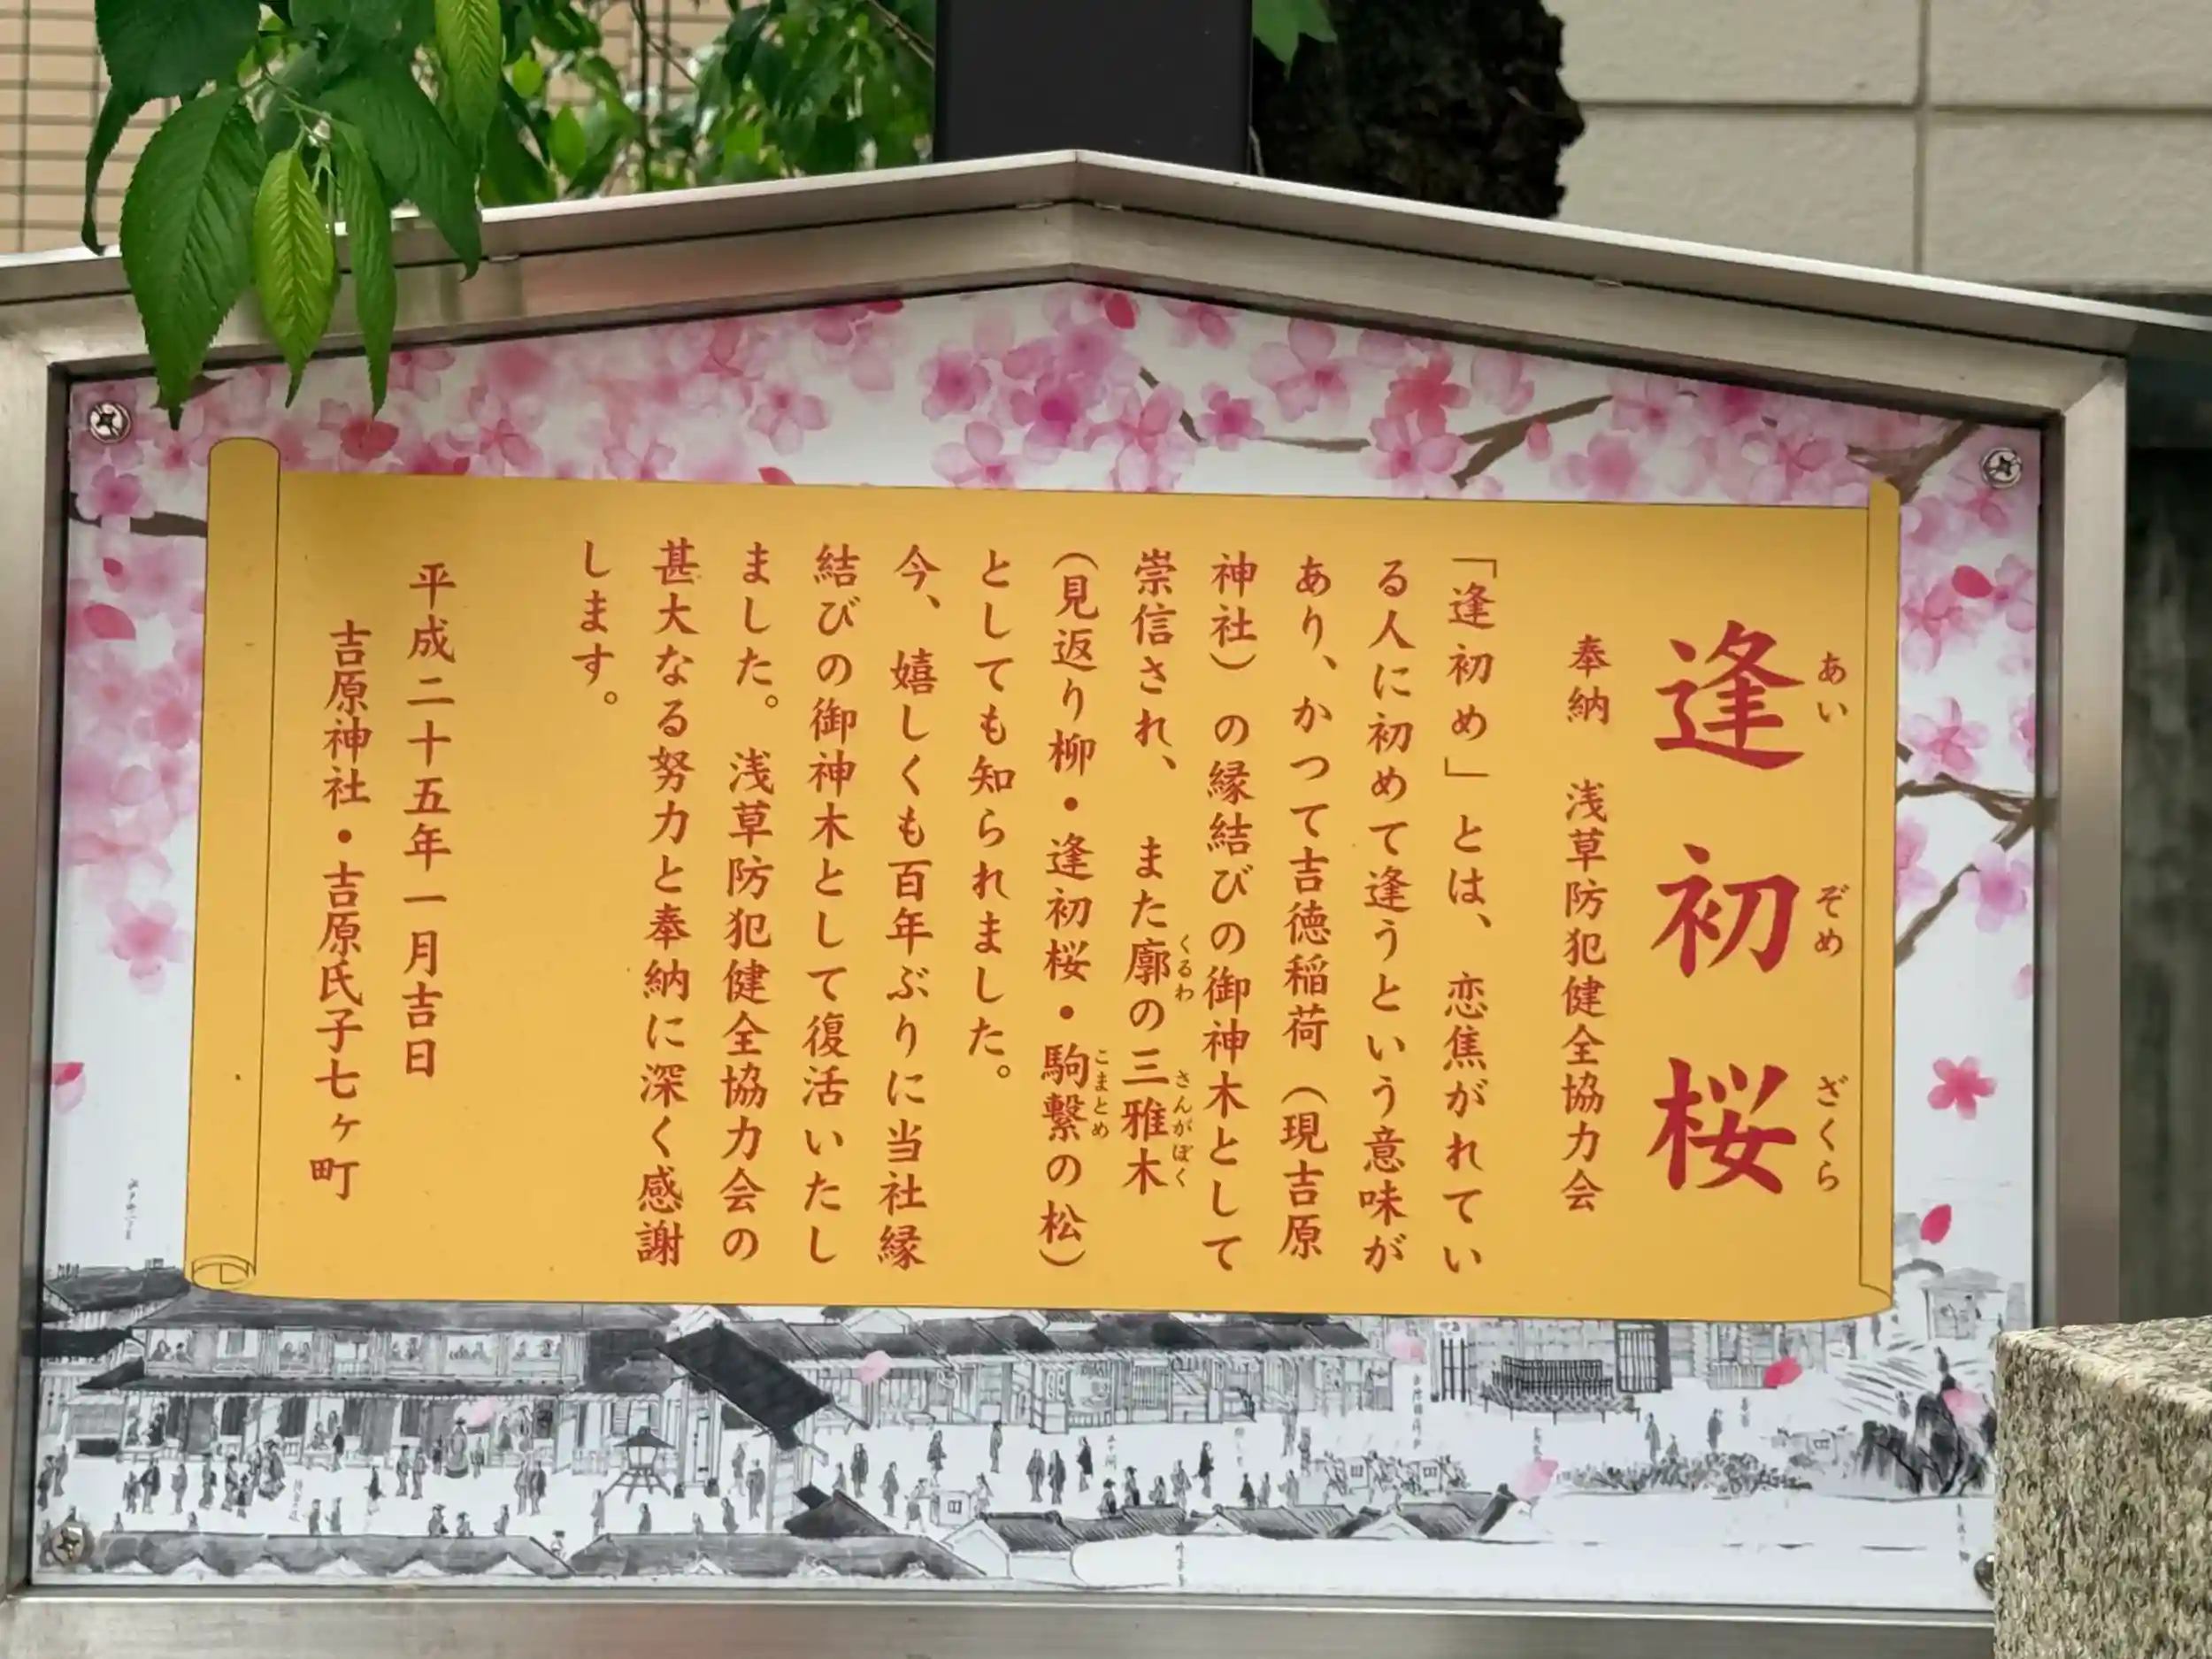 逢初桜
あい ぞめ ざくら
奉納 浅草防犯健全協力会
「逢初め」とは、恋焦がれてい
る人に初めて逢うという意味が
あり、かつて吉徳稲荷（現吉原
神社）の縁結びの御神木として
崇信され、また廓の三雅木
くるわ さんがぼく
（見返り柳・逢初桜・駒繋の松）
こまとめ
としても知られました。
今、嬉しくも百年ぶりに当社縁
結びの御神木として復活いたし
ました。浅草防犯健全協力会の
甚大なる努力と奉納に深く感謝
します。
平成二十五年一月吉日
吉原神社・吉原氏子七ヶ町